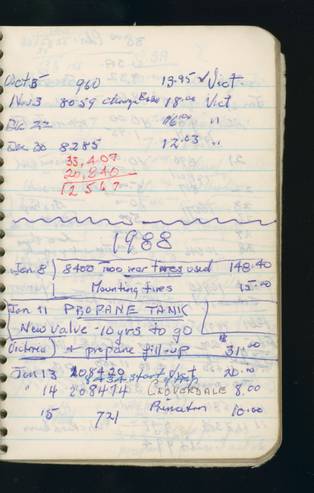 Oct 5 960 13.95 Vict.
Nov 3 8059 change 18.00 Vict
Dec 22 16.00 "
Dec 30 8285 12.03 "
33,407
20,840
12567
1988
Jan 8 8400 Two tires used 148.40
Mounting tires 12.00
Jan 11 PROPANE TANK
New valve - 10 yrs to go
Victoria + propane fill-up 31.00
Jan 13 208420 start Vict 20.00
8434
" 14 208474 CLOVERDALE 8.00
15 721 Princeton 10.00